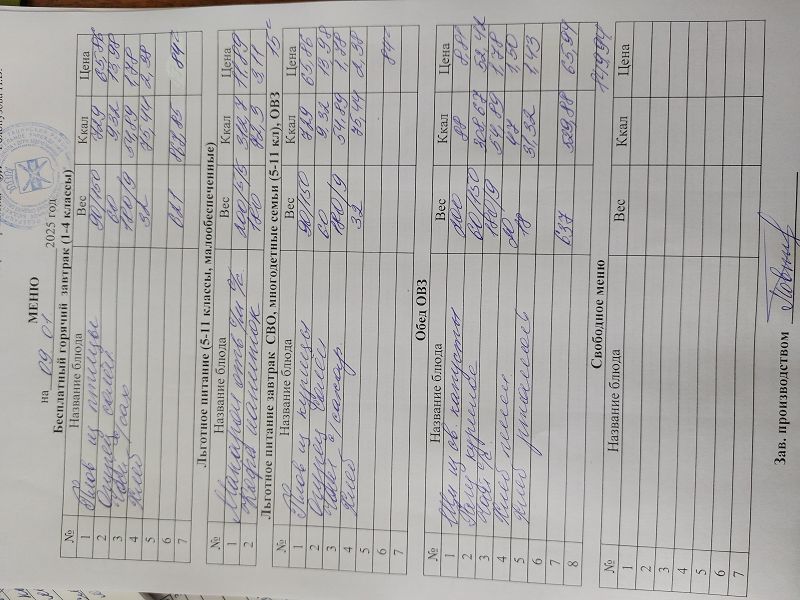 МЕНЮ
на 09 01 2025 год
Бесплатный горячий завтрак (1-4 классы)
№ Название блюда Вес Ккал Цена
1 Плов из птицы 90/150 729 65,86
2 Огурец солен 60 9,32 13,98
3 Чай с/сах 180/9 54,89 1,78
4 Хлеб 32 75,44 2,38
5
6 84=
7
Льготное питание (5-11 классы, малообеспеченные)
№ Название блюда Вес Ккал Цена
1 Макароны отв 200/5/5 11,89
2 Кофе напиток 180 3,11
15=
Льготное питание завтрак СВО, многодетные семьи (5-11 кл), ОВЗ
№ Название блюда Вес Ккал Цена
1 Плов из курицы 90/150 729 65,86
2 Огурец солен 60 9,32 13,98
3 Чай с/сахар 180/9 54,89 1,78
4 Хлеб 32 75,44 2,38
5
6 84=
7
Обед ОВЗ
№ Название блюда Вес Ккал Цена
1 Щи из св. капусты 200 88 8,88
2 60/150 308,67 52,41
3 Чай 180/9 54,89 1,78
4 Хлеб пшен 20 47 1,50
5 Хлеб ржаной 18 31,32 1,43
6
7 637 529,88 65,99
8
149,99
Свободное меню
№ Название блюда Вес Ккал Цена
1
2
3
4
5
6
7
Зав. производством